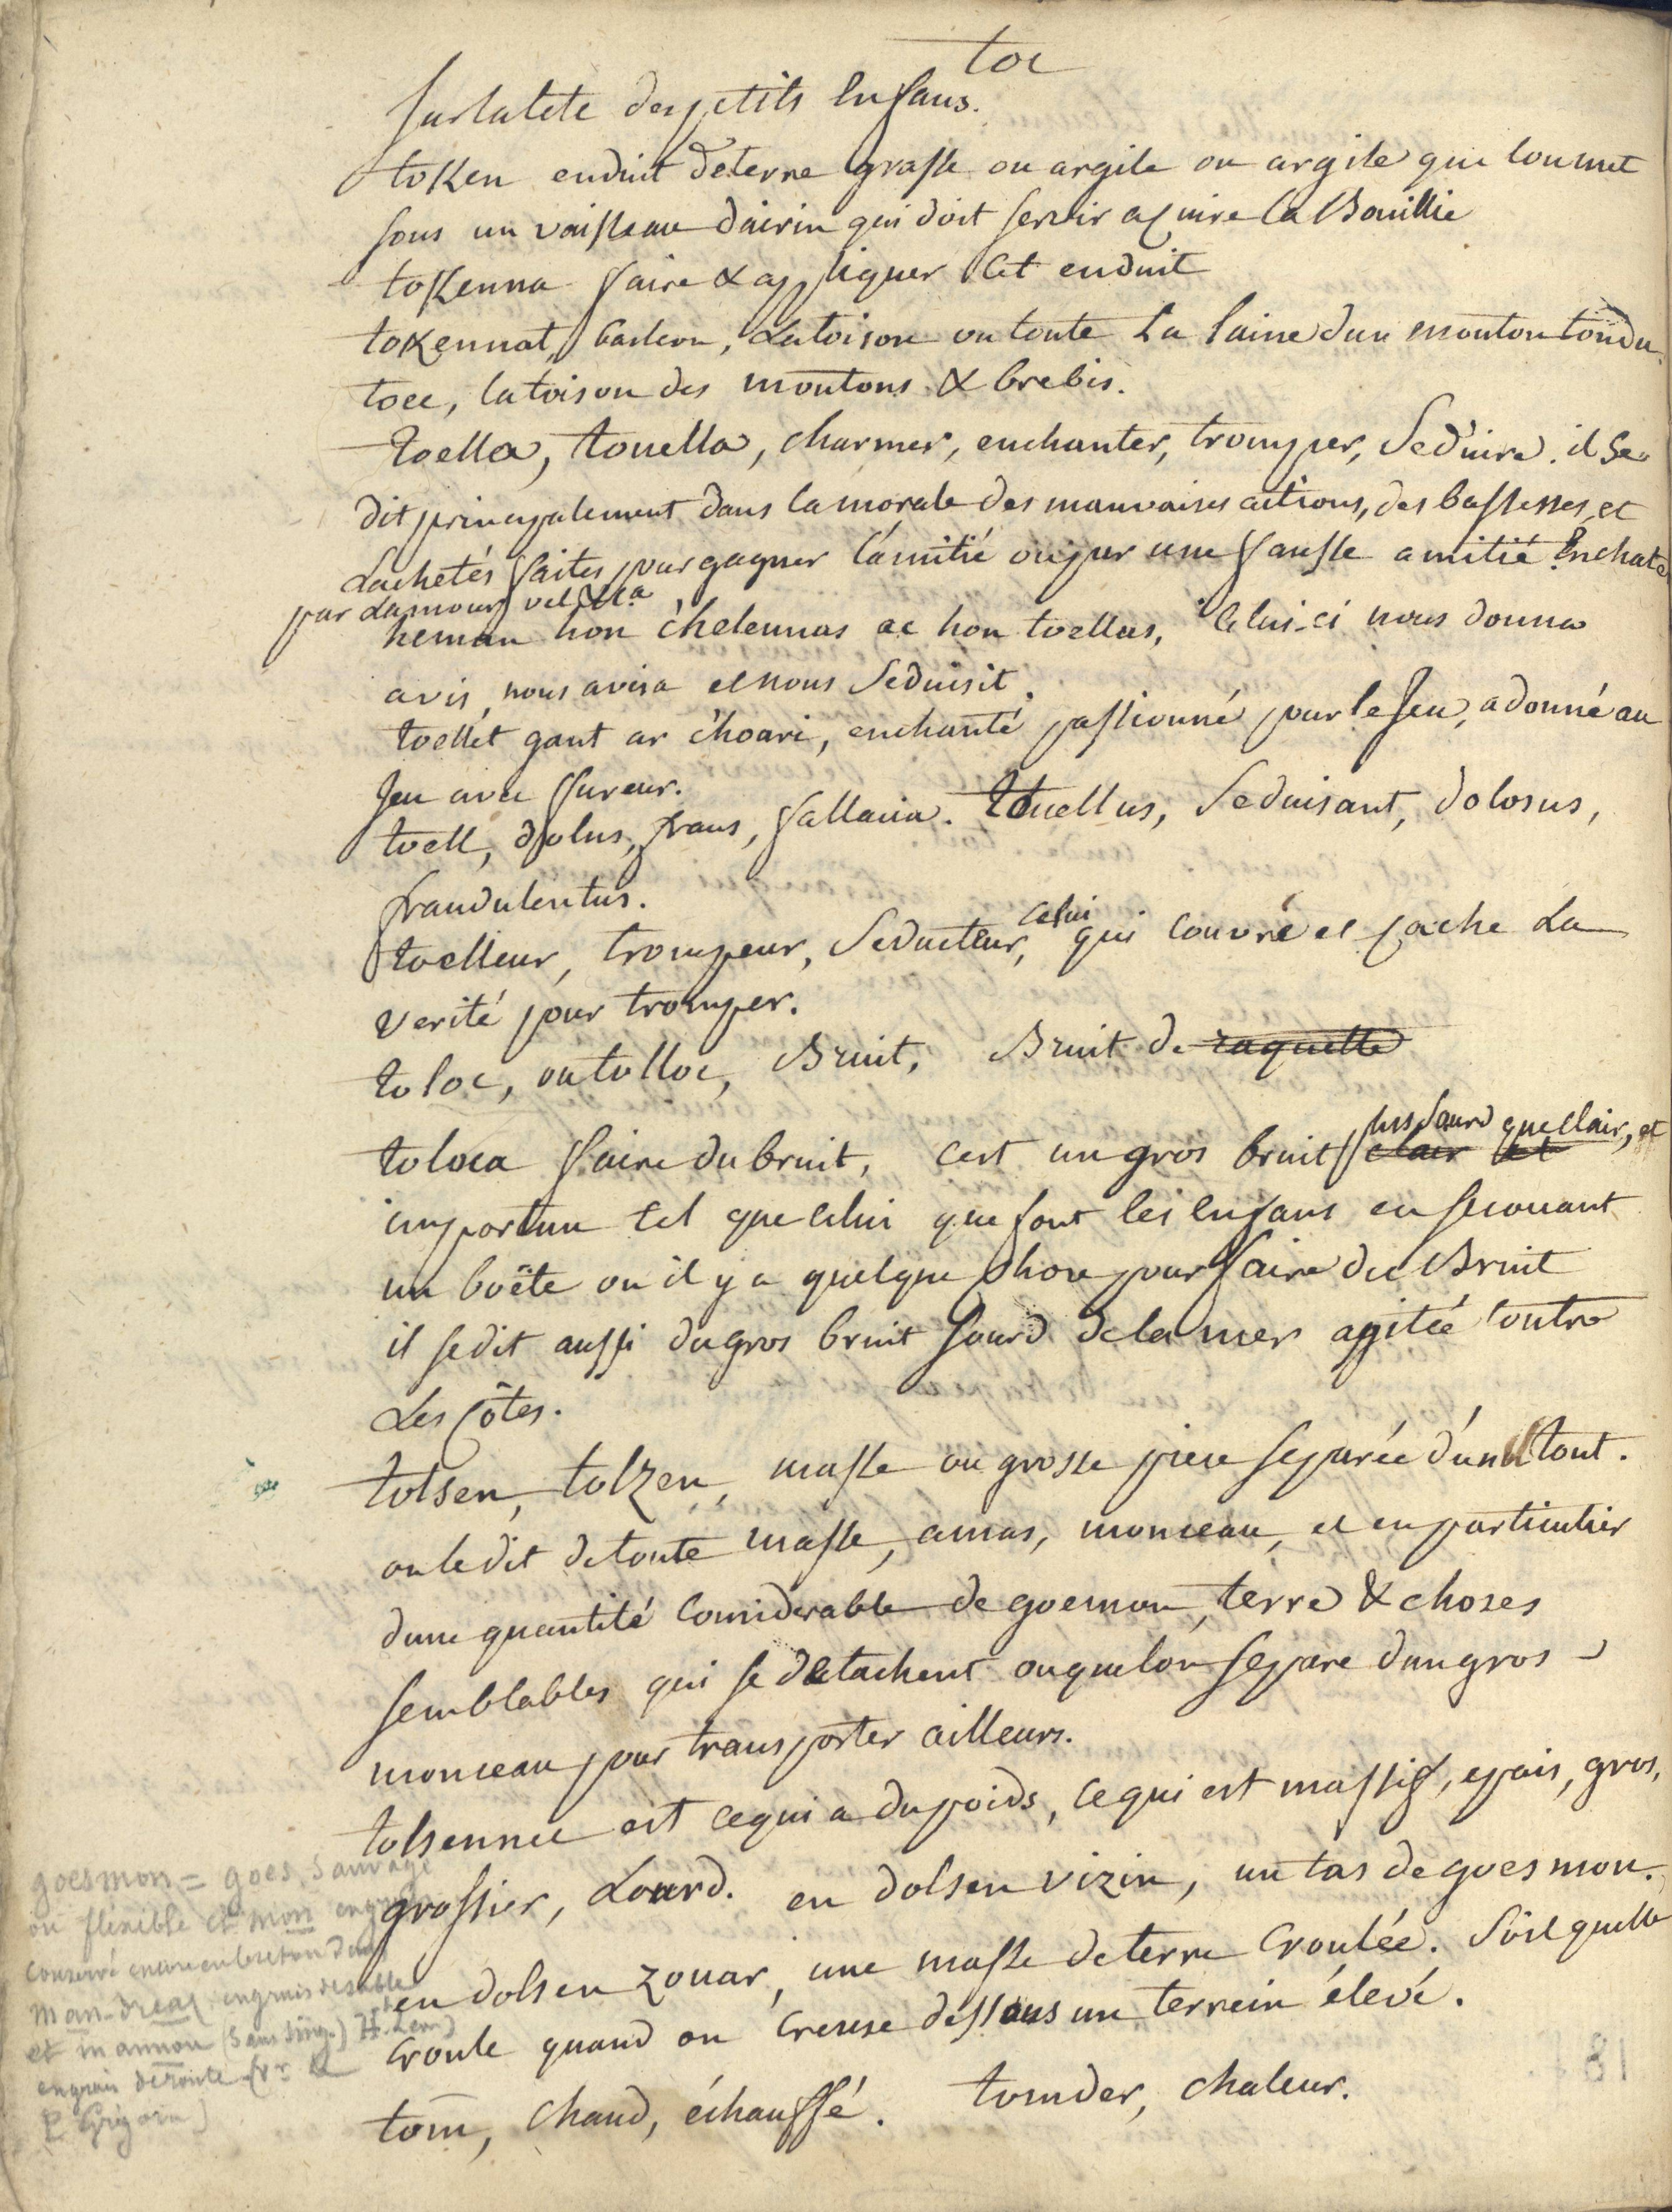 toc
sur la tete des petits enfans.
token enduit de terre grasse ou argile ou argile que lon met
sous un vaisseau dairin qui doit servir a cuire la Bouillie
tokenna faire & appliquer cet enduit
tokennat, la toison ou toute La laine dun mouton tondu.
toec, la toison des moutons & brebis.
toella, touella, charmer, enchanter, tromper, Seduire. il se
dit principalement dans la morale des mauvaises actions, des bassesses, et
Lachetés faites pour gagner l'amitié ou par une fausse amitié. Enchate
par Lamour, vel &c.a
heman hon c'helennas ac hon toellas, Celui-ci nous donna
avis, nous avisa et nous Seduisit.
toellet gant ar c'hoari, enchanté passionné pour le jeu, adonné au
Jeu avec fureur.
toell, dolus, fraus, fallacia. Touellus, Seduisant, dolosus,
fraudulentus.
toelleur, trompeur, Seducteur, celui qui couvre et cache La
verité pour tromper.
toloc, ou tolloc, Bruit, Bruit de raquette
toloca faire du bruit, cest un gros bruit plus Sourd que clair, et
clair et
importun tel que celui que font les enfans en secouant
un boëte ou il y a quelque chose pour faire du Bruit
il se dit aussi du gros bruit sourd de la mer agitée contre
Les côtes.
tolsen, tolzen, masse ou grosse piece separée d'un tout.
on le dit de toute masse, amas, monceau, et en particulier
dune quantité considerable de goemon, terre & choses
semblables qui se detachent ou que lon separe dun gros
monceau pour transporter ailleurs.
tolsennec est ce qui a du poids, ce qui est massif, epais, gros,
grossier, Lourd. en dolsen vizin, un tas de goesmon.
en dolsen zouar, une masse de terre croulée. Soit quelle
croule quand on creuse dessous un terrein élevé.
tom, chaud, échauffé. tomder, chaleur.
goesmon = goes, sauvage
ou flexible et mon engrais
conservé encore en breton dans
man-dreaz, engrais de sable
et mannon (sans sing.) Ht Leon)
engrais de route (vr
P Grégoire)
181